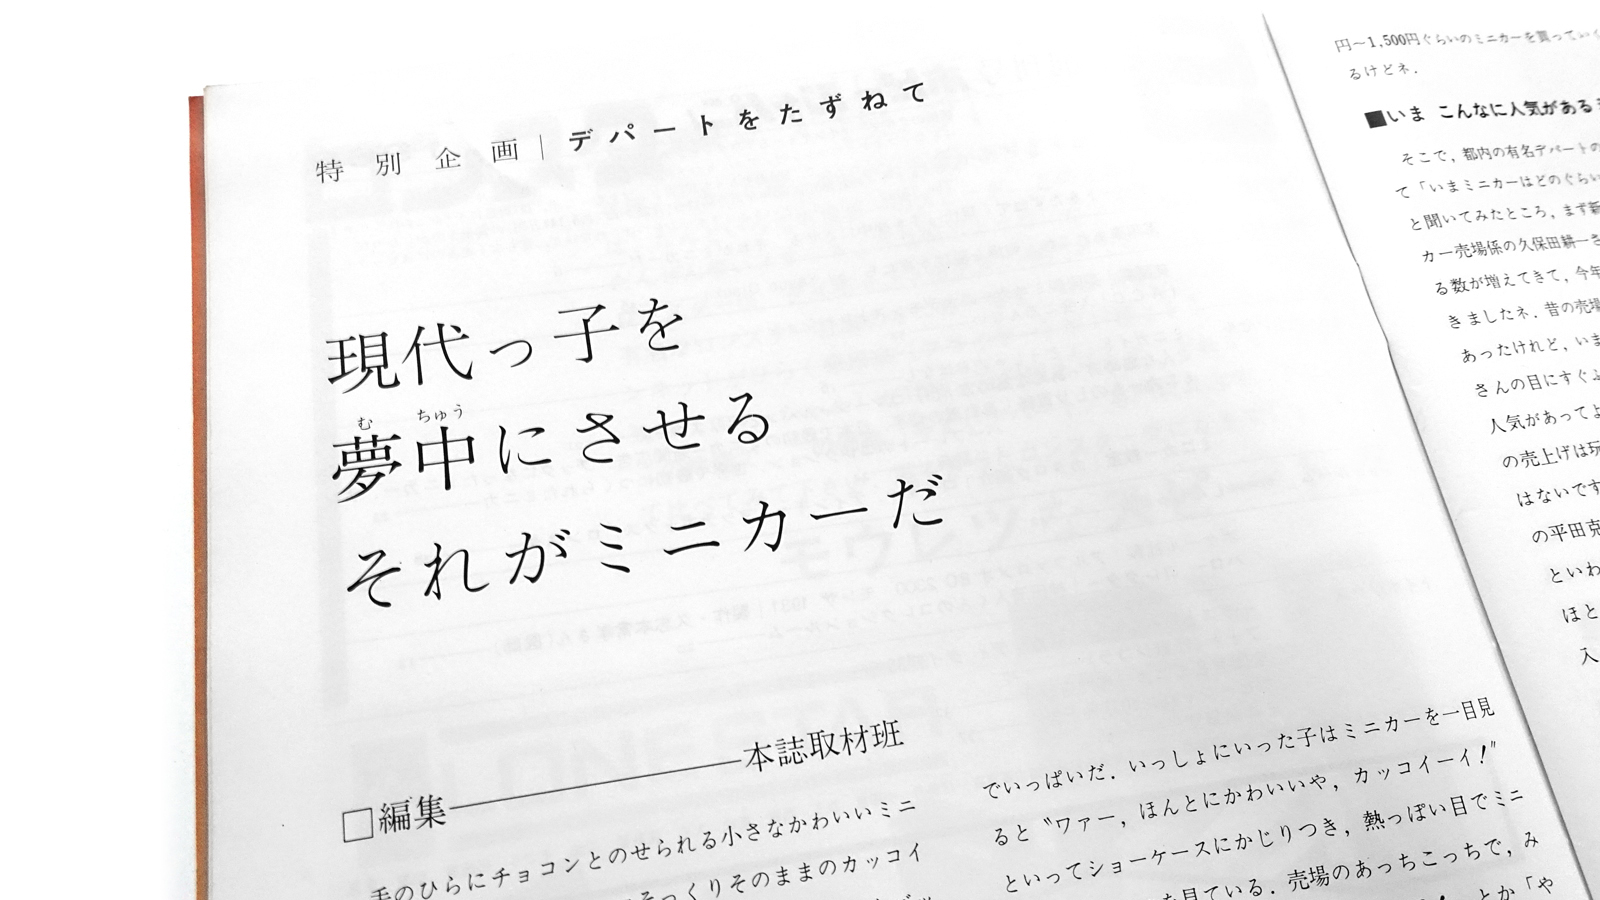 特別企画|デパートをたずねて
現代っ子を
夢中にさせる
むちゅう
それがミニカーだ
□編集———本誌取材班
手のひらにチョコンとのせられる小さなかわいいミニ
そっくりそのままのカッコイ
でいっぱいだ．いっしょにいった子はミニカーを一目見
ると〝ワァー，ほんとにかわいいや，カッコイーイ！〞
といってショーケースにかじりつき，熱っぽい目でミニ
を見ている．売場のあっちこっちで，み
とか「や
円～1,500円ぐらいのミニカーを買っていく
るけどネ．
■いま こんなに人気がある
そこで，都内の有名デパートの
て「いまミニカーはどのぐらい
と聞いてみたところ，まず新
カー売場係の久保田耕一さ
る数が増えてきて，今年
きましたネ．昔の売場
あったけれど，いま
さんの目にすぐふ
人気があってよ
の売上げは玩
はないです
の平田克
といわ
ほと
入